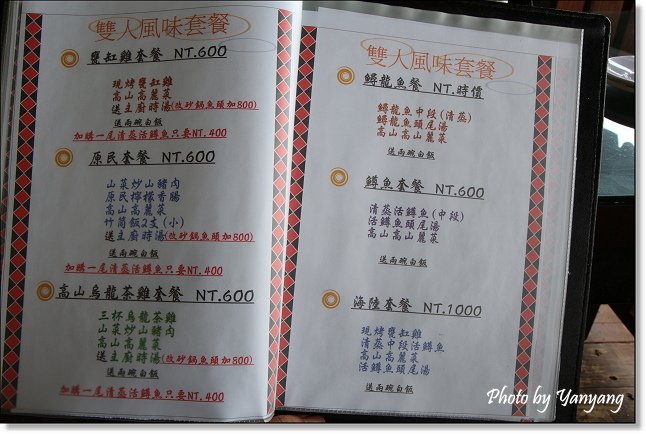 雙人風味套餐
甕缸雞套餐 NT.600
現烤甕缸雞
高山高麗菜
送主廚時湯(改砂鍋魚頭加800)
送兩碗白飯
加購一尾清蒸活鱒魚只要NT.400
原民套餐 NT.600
山菜炒山豬肉
原民檸檬香腸
高山高麗菜
竹筒飯2支(小)
送主廚時湯(改砂鍋魚頭加800)
送兩碗白飯
加購一尾清蒸活鱒魚只要NT.400
高山烏龍茶雞套餐 NT.600
三杯烏龍茶雞
山菜炒山豬肉
高山高麗菜
送主廚時湯(改砂鍋魚頭加800)
送兩碗白飯
加購一尾清蒸活鱒魚只要NT.400
雙人風味套餐
鱘龍魚套餐 NT.時價
鱘龍魚中段(清蒸)
鱘龍魚頭尾湯
高山高麗菜
送兩碗白飯
鱒魚套餐 NT.600
清蒸活鱒魚(中段)
活鱒魚頭尾湯
高山高麗菜
送兩碗白飯
海陸套餐 NT.1000
現烤甕缸雞
清蒸中段活鱒魚
高山高麗菜
活鱒魚頭尾湯
送兩碗白飯
Photo by Yanyang